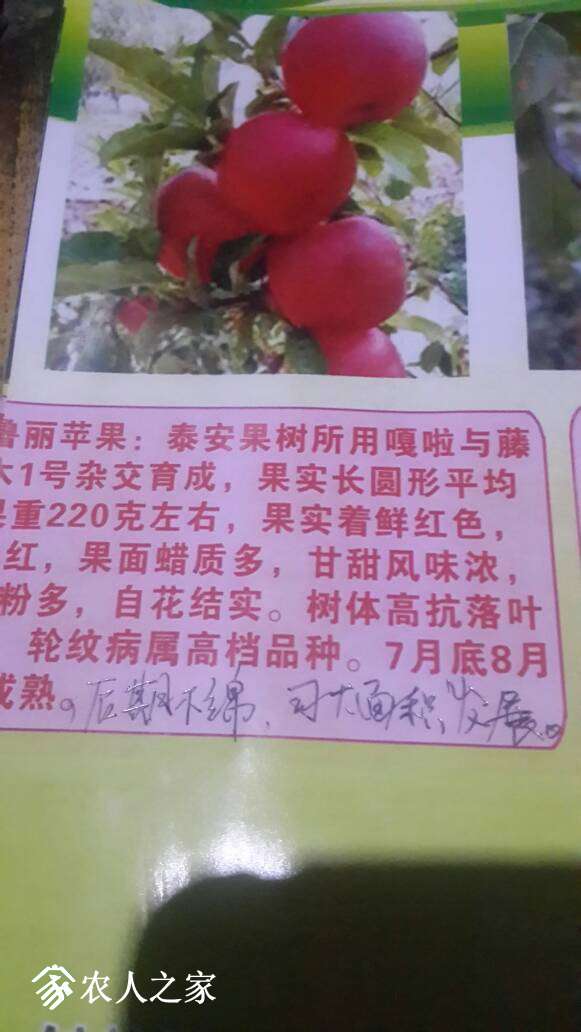 鲁丽苹果：泰安果树所用嘎啦与藤
木1号杂交育成，果实长圆形平均
果重220克左右，果实着鲜红色，
红，果面蜡质多，甘甜风味浓，
粉多，自花结实。树体高抗落叶
轮纹病属高档品种。7月底8月
成熟。后期不绵、可大面积发展。
农人之家